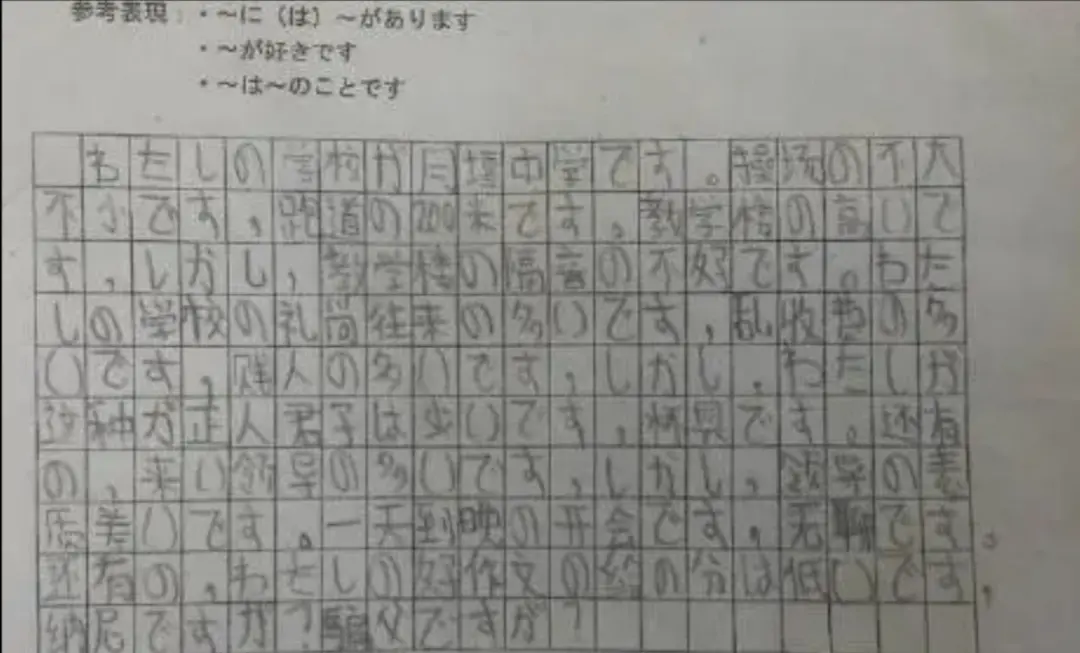 参考表現：・～に（は）～があります
・～が好きです
・～は～のことです
わたしの学校が月埔中学です。操场の不大
不小です，跑道の200米です，教学楼の高いで
す，しかし，教学楼の隔音の不好です。わた
しの学校の礼尚往来の多いです，乱收费の多
いです，贱人の多いです，しかし，わたしが
这种が正人君子は少いです，杯具です。还有
の，来い领导の多いです，しかし，领导の表
面美いです。一天到晚の开会です，无聊です。
还有の，わたしの好作文の给の分は低いです，
纳尼ですか？騙父ですが？